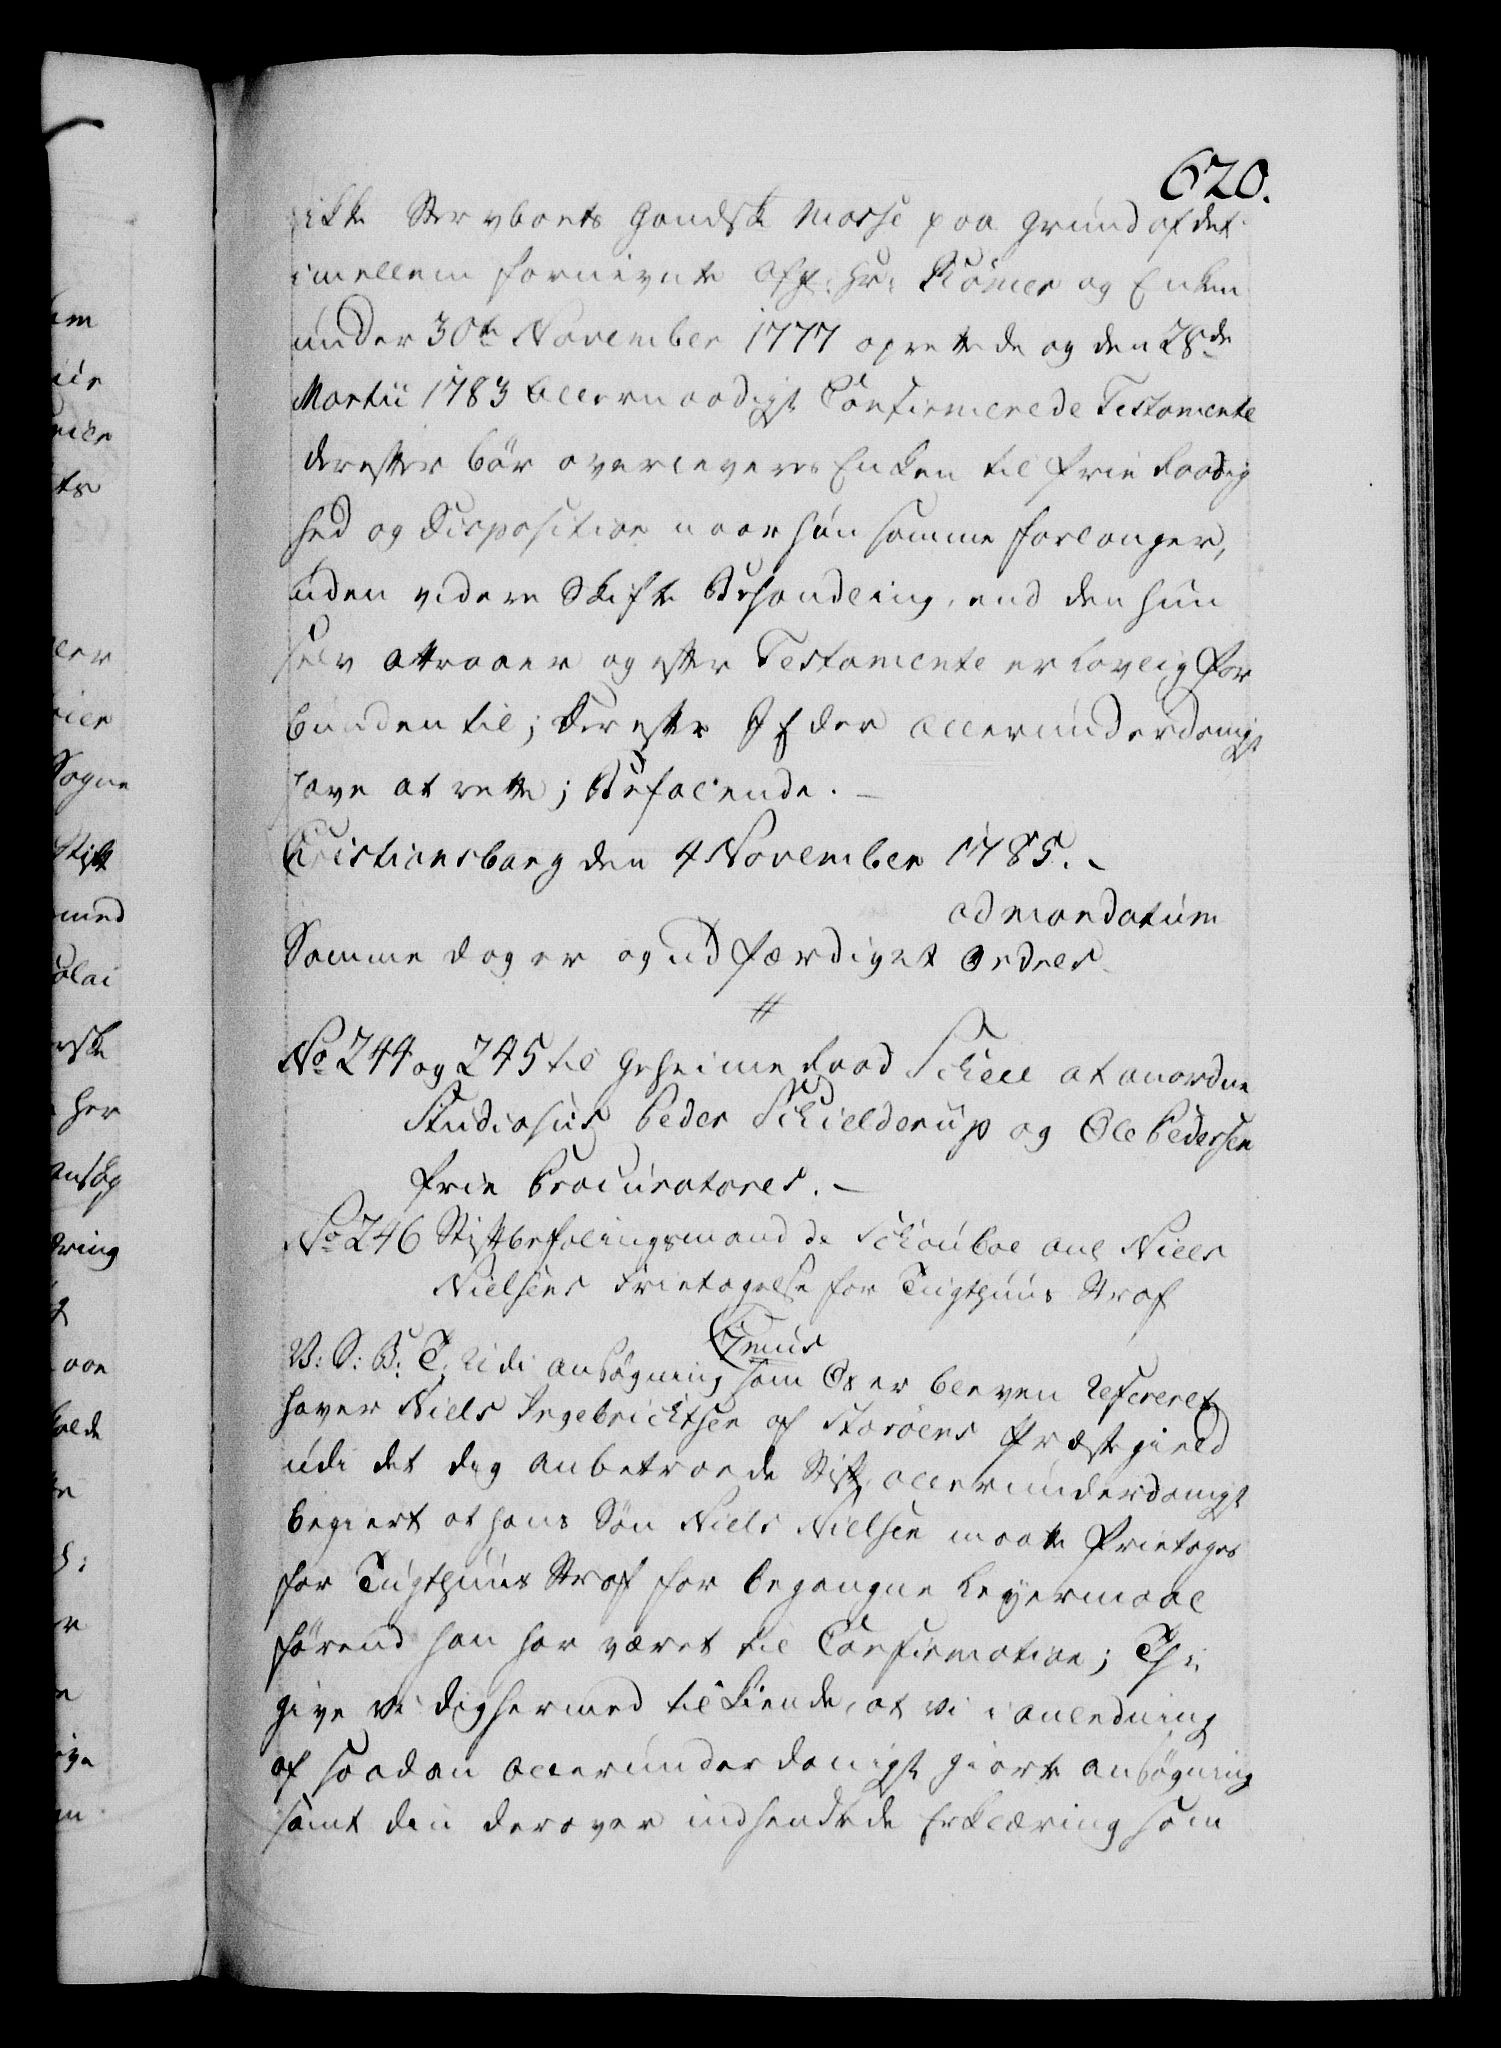 620.
ikke Sterboets Gandske Masse paa Grund af det
imellem fornevnte Afg: Hr: Rømer og Enken
under 30te November 1777 oprettede og den 28de
Martii 1783 allernaadigst Confirmerede Testamente
derefter bør overleveres Enken til frie Raadig
hed og Disposition naar hun samme forlanger,
uden videre Skifte Behandling, end den hun
selv attraaer og efter Testamente er lovlig for
bunden til; Derefter I eder allerunderdanigst
have at rette; Befalende. —
Cristiansborg den 4 November 1785. -
ad mandatum
Samme dag er og udfærdiget Ordres
#
No 244 og 245 til Geheime Raad Scheel at anordne
Studiosus Peder Schielderup og Ole Pedersen
frie Procuratores. —
No 246 Stiftbefalingsmand de Schouboe anl Niels
Nielsens Fritagelse for Tugthuus Straf
V: S: B: T, Udi Ansøgning som Os er bleven refereret
haver Niels Ingebrichtsen af Storøens Præstegield
udi det dig anbetroede Stift, allerunderdanigst
begiert at hans Søn Niels Nielsen maatte fritages
for Tugthuus Straf for begangne Leyermaal
førend han har været til Confirmation; Th:
give Vi dig hermed tilkiende, at Vi i anledning
af saadan allerunderdanigst giorte Ansøgning
samt den derover indsendte Erklæring som